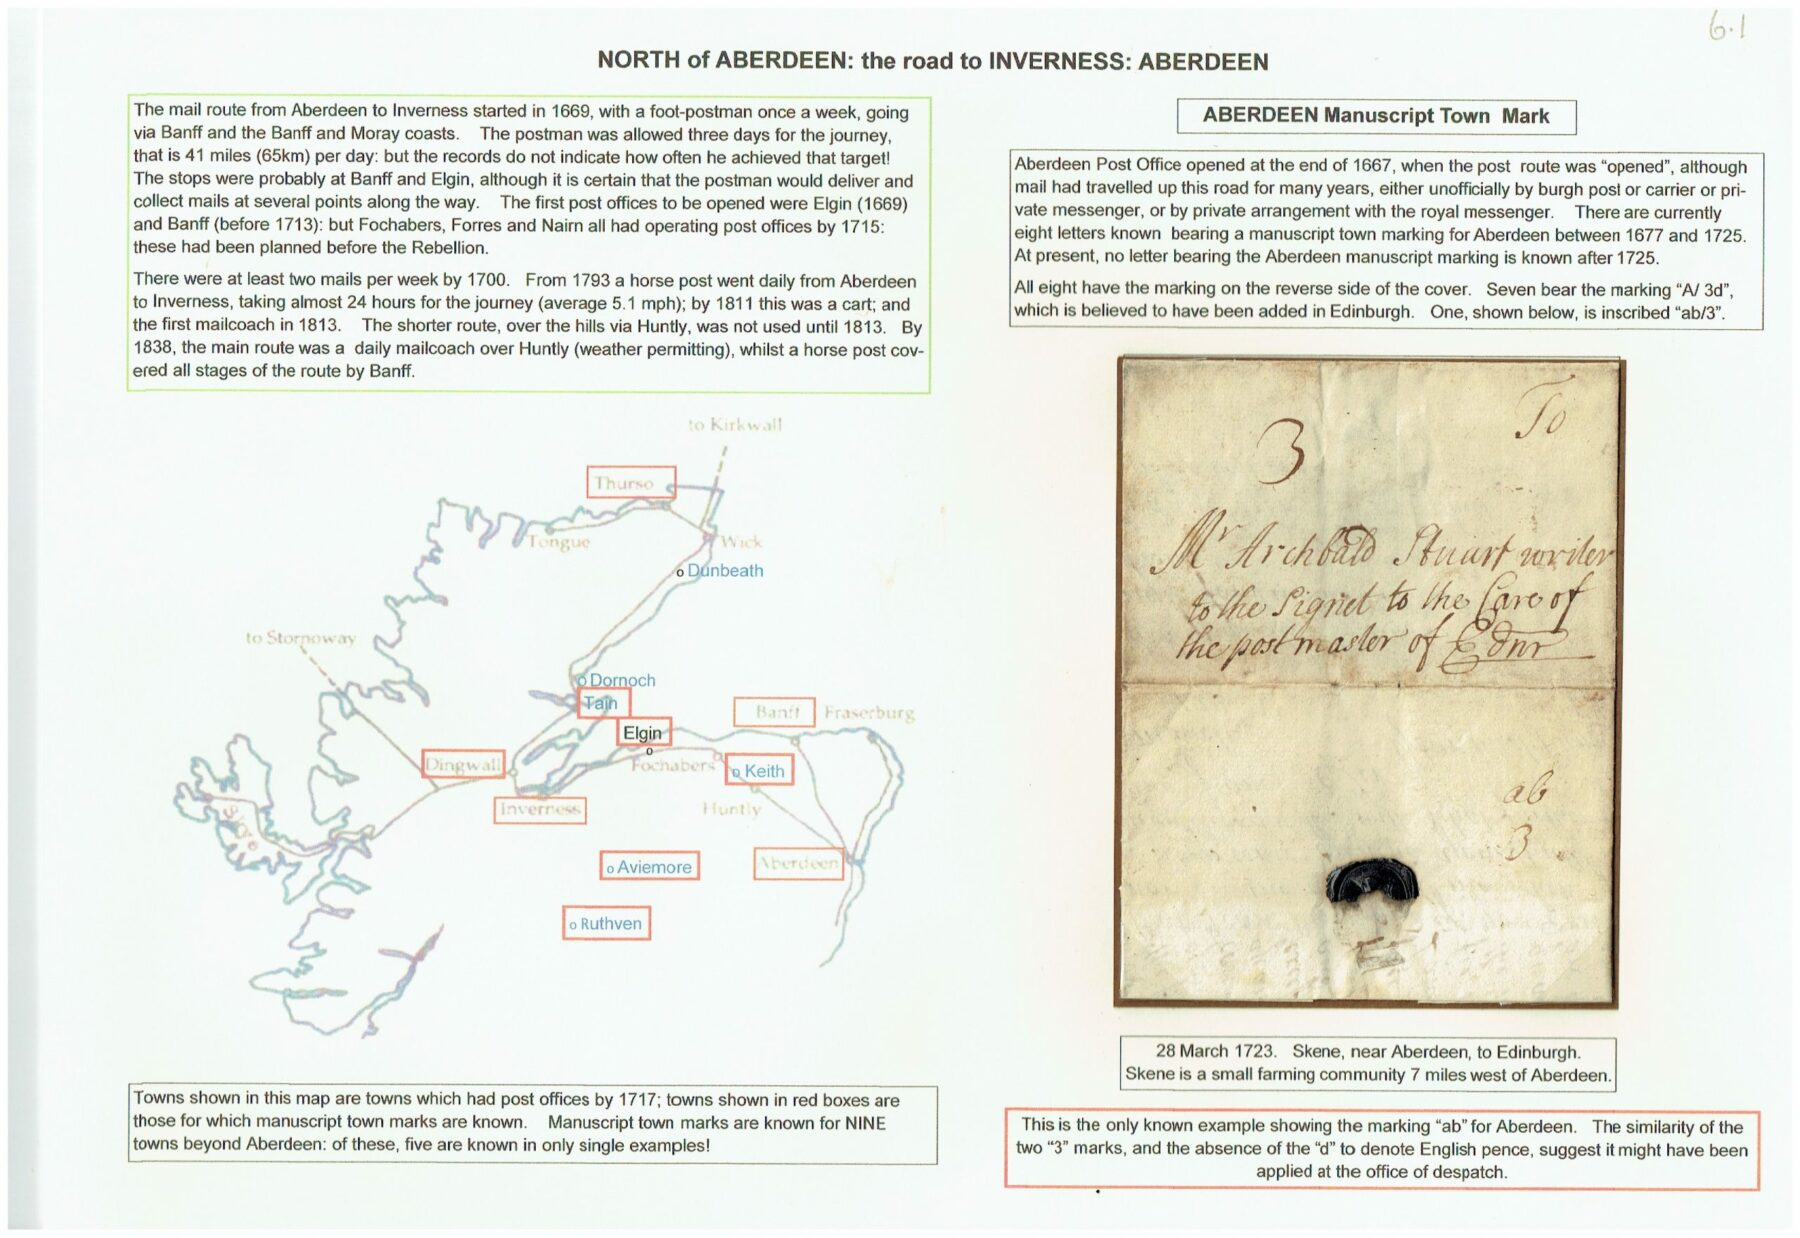 6.1
NORTH of ABERDEEN: the road to INVERNESS: ABERDEEN
The mail route from Aberdeen to Inverness started in 1669, with a foot-postman once a week, going
via Banff and the Banff and Moray coasts. The postman was allowed three days for the journey,
that is 41 miles (65km) per day: but the records do not indicate how often he achieved that target!
The stops were probably at Banff and Elgin, although it is certain that the postman would deliver and
collect mails at several points along the way. The first post offices to be opened were Elgin (1669)
and Banff (before 1713): but Fochabers, Forres and Nairn all had operating post offices by 1715:
these had been planned before the Rebellion.
There were at least two mails per week by 1700. From 1793 a horse post went daily from Aberdeen
to Inverness, taking almost 24 hours for the journey (average 5.1 mph); by 1811 this was a cart; and
the first mailcoach in 1813. The shorter route, over the hills via Huntly, was not used until 1813. By
1838, the main route was a daily mailcoach over Huntly (weather permitting), whilst a horse post cov-
ered all stages of the route by Banff.
to Kirkwall
Thurso
Tongue
Wick
Dunbeath
to Stornoway
Dornoch
Tain
Elgin
Banff
Fraserburg
Dingwall
Fochabers
Keith
Inverness
Huntly
Skye
Aviemore
Aberdeen
Ruthven
Towns shown in this map are towns which had post offices by 1717; towns shown in red boxes are
those for which manuscript town marks are known. Manuscript town marks are known for NINE
towns beyond Aberdeen: of these, five are known in only single examples!
ABERDEEN Manuscript Town Mark
Aberdeen Post Office opened at the end of 1667, when the post route was “opened”, although
mail had travelled up this road for many years, either unofficially by burgh post or carrier or pri-
vate messenger, or by private arrangement with the royal messenger. There are currently
eight letters known bearing a manuscript town marking for Aberdeen between 1677 and 1725.
At present, no letter bearing the Aberdeen manuscript marking is known after 1725.
All eight have the marking on the reverse side of the cover. Seven bear the marking “A/ 3d”,
which is believed to have been added in Edinburgh. One, shown below, is inscribed “ab/3”.
To
3
Mr Archbald Stuart writer
to the Signet to the Care of
the postmaster of Ednr
ab
3
28 March 1723. Skene, near Aberdeen, to Edinburgh.
Skene is a small farming community 7 miles west of Aberdeen.
This is the only known example showing the marking “ab” for Aberdeen. The similarity of the
two “3” marks, and the absence of the “d” to denote English pence, suggest it might have been
applied at the office of despatch.